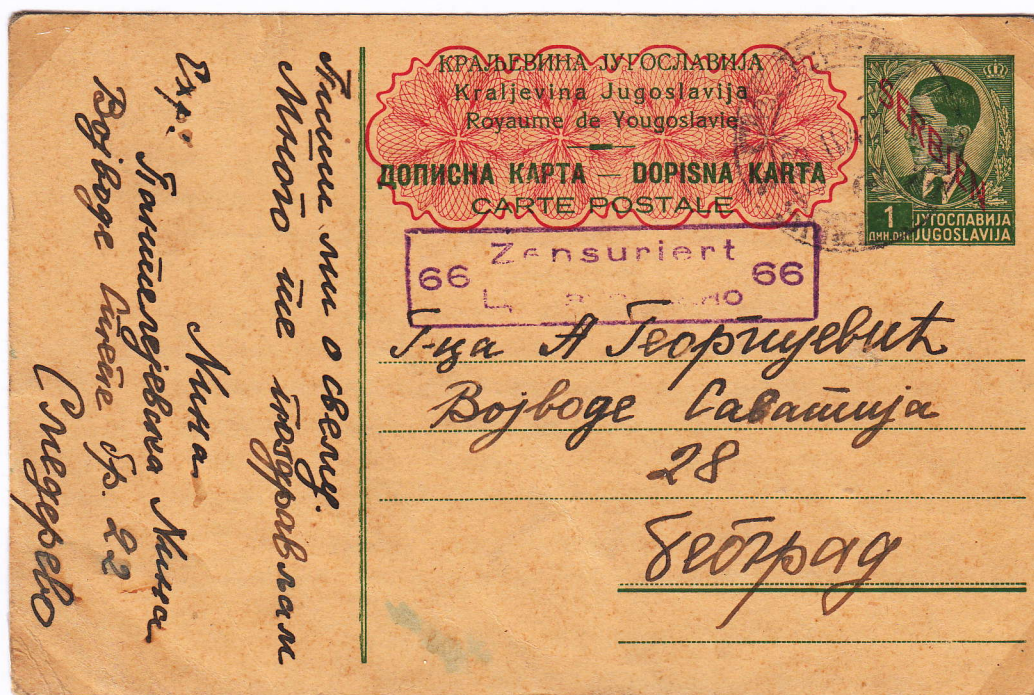 КРАЉЕВИНА ЈУГОСЛАВИЈА
Kraljevina Jugoslavija
Royaume de Yougoslavie
ДОПИСНА КАРТА — DOPISNA KARTA
CARTE POSTALE
SERBIEN
1
ДИН. DIN
ЈУГОСЛАВИЈА
JUGOSLAVIJA
Zensuriert
66 66
Г-ца А Георгијевић
Војводе Саватија
28
Београд
Пиши ми о свему.
Много те поздрављам
Нина
Пантелејевна Нина
Војводе Степе бр. 22
Смедерево